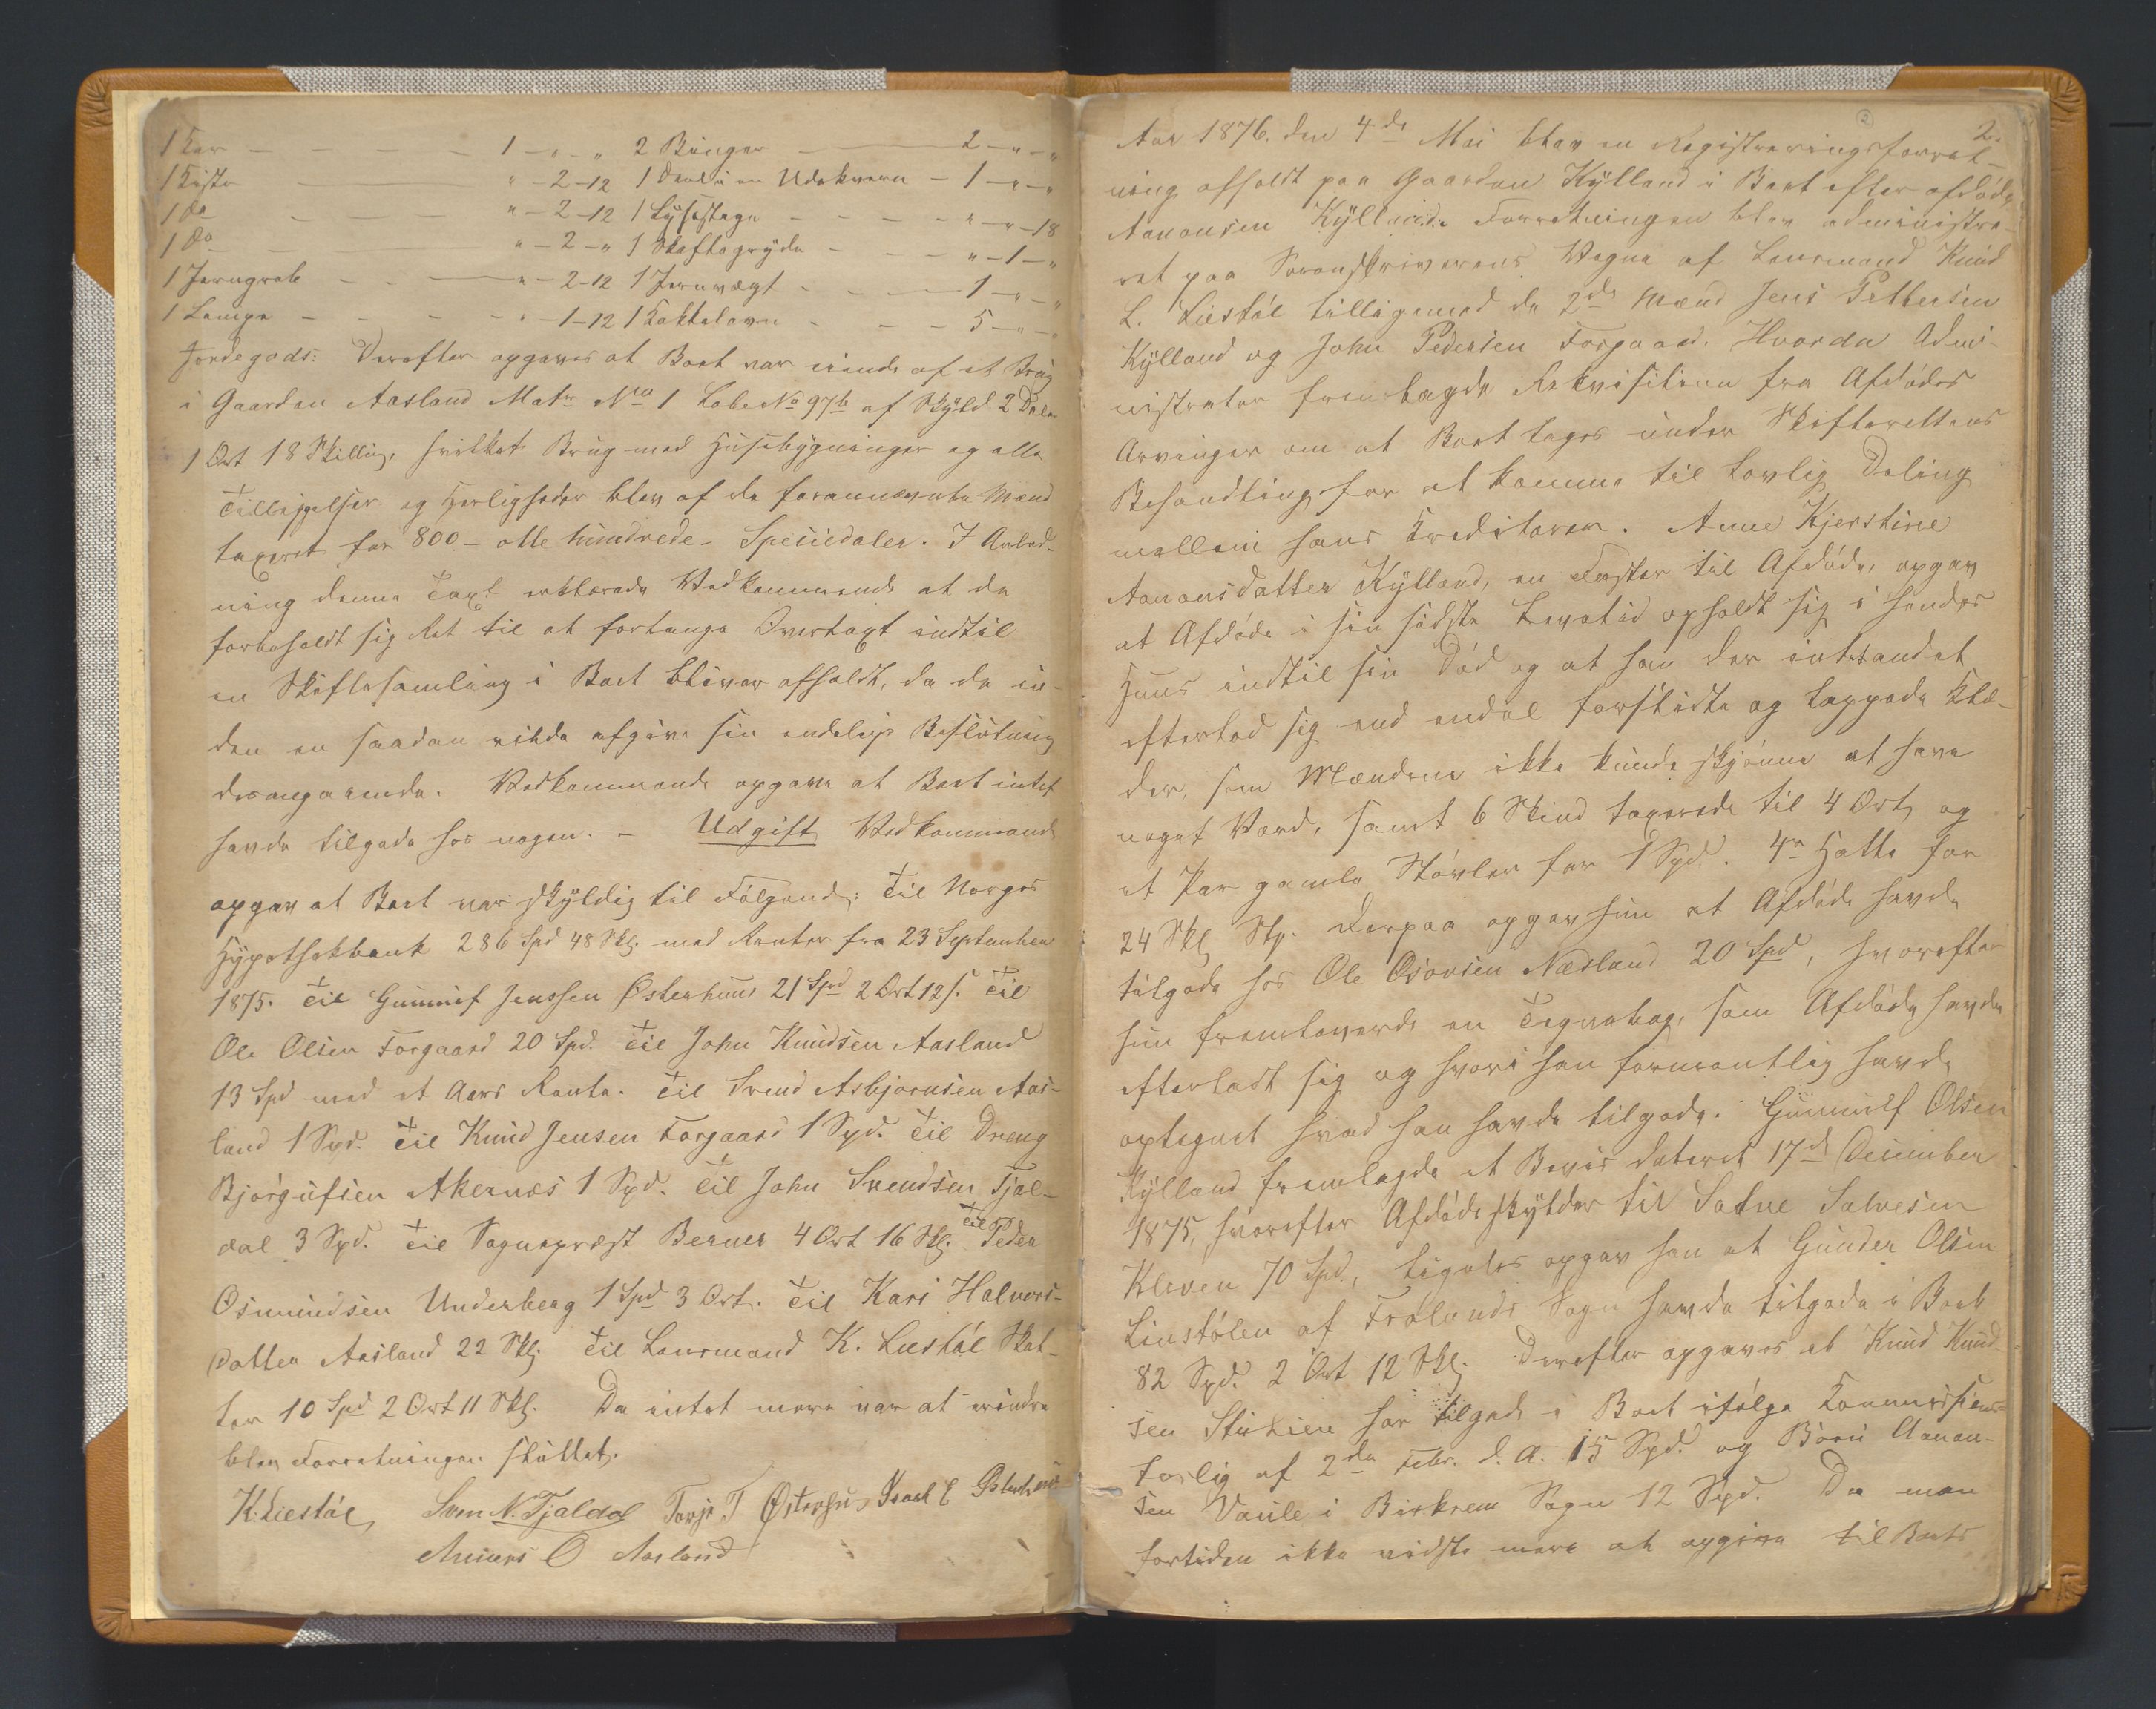 1 Kar — — — — — 1 — „ — „ 2 Binger — — 2 — „ — „
1 Kiste — — „ — 2 — 12 1 Deel i en Udekværn — 1 — „ — „
1 do — — „ — 2 — 12 1 Lysestage — — — — „ — „ — 18
1 do — — „ — 2 — „ 1 Skaftegryde — — — „ — 1 — „
1 Jerngrøb — — — „ — 2 — 12 1 Jernvægt — — 1 — „ — „
1 Lampe — — — — „ — 1 — 12 1 Kakkelovn — — — 5 — „ — „
Jordegods: Derefter opgaves at Boet var eiende af et Brug
i Gaarden Aasland Matr No 1 Løbe No 97b af Skyld 2 Daler
1 Ort 18 Skilling, hvilket Brug med Husebygninger og alle
Tilleiggelser og Herligheder blev af de forannævnte Mænd
taxeret for 800 — otte hundrede — Speciedaler. I Anled-
ning denne Taxt erklærede Vedkommende at de
forbeholdt sig Ret til at forlange Overtaxt indtil
en Skiftesamling i Boet bliver afholdt, da de in-
den en saadan vilde afgive sin endelige Beslutning
desangaaende. Vedkommende opgave at Boet intet
havde tilgode hos nogen. — Udgift Vedkommende
opgav at Boet var skyldig til Følgende: Til Norges
Hypothekbank 286 Spd 48 Skl. med Renter fra 23 September
1875. Til Gunnuf Jenssen Østerhuus 21 Spd 2 Ort 12 s. Til
Ole Olsen Forgaard 20 Spd. Til John Knudsen Aasland
13 Spd med et Aars Rente. Til Svend Asbjørnsen Aas-
land 1 Spd. Til Knud Jensen Forgaard 1 Spd. Til Dreng
Bjørgufsen Akernæs 1 Spd. Til John Svendsen Tjal-
dal 3 Spd. Til Sognepræst Berner 4 Ort 16 Skl. Til Peder
Osmundsen Underberg 1 Spd 3 Ort. Til Kari Halvors-
datter Aasland 22 Skl. Til Lensmand K. Liestøl Skat-
ter 10 Spd 2 Ort 11 Skl. Da intet mere var at erindre
blev Forretningen sluttet.
K. Liestøl Sven N. Tjaldal Torje T Østerhus Isach E Østerhuus
Anners O Aasland
2.
Aar 1876. den 4de Mai blev en Registreringsforret-
ning afholdt paa Gaarden Kylland i Boet efter afdøde
Aanonsen Kylland. Forretningen blev administre-
ret paa Sorenskriverens Vegne af Lensmand Knud
L. Liestøl tilligemed de 2de Mænd Jens Pettersen
Kylland og John Pedersen Forgaard. Hvorda Admi-
nistrator fremlagde Rekvisitionen fra Afdødes
Arvinger om at Boet tages under Skifterettens
Behandling for at komme til lovlig Deling
mellem hans Kreditorer. Anne Kjerstine
Aanonsdatter Kylland, en Søster til Afdøde, opgav
at Afdøde i sin sidste Levetid opholdt sig i hendes
Huus indtil sin Død og at han der intetandet
efterlod sig end endel forslidte og lappede Klæ-
der, som Mændene ikke kunde skjønne at have
noget Værd, samt 6 Skind taxerede til 4 Ort, og
et Par gamle Støvler for 1 Spd. 4re Hatte for
24 Skl Stp. Derpaa opgav hun at Afdøde havde
tilgode hos Ole Osovsen Næsland 20 Spd, hvorefter
hun fremleverede en Tegnebog, som Afdøde havde
efterladt sig og hvori han formentlig havde
optegnet hvad han havde tilgode. Gunnulf Olsen
Kylland fremlagde et Bevis dateret 17de December
1875, hvorefter Afdøde skylder til Salve Salvesen
Kleven 70 Spd., ligeledes opgav han at Gunder Olsen
Linstølen af Frolands Sogn havde tilgode i Boet
82 Spd. 2 Ort 12 Skl. Derefter opgaves at Knud Knud-
sen Stulien har tilgode i Boet ifølge Kommissions-
forlig af 2den Febr. d. A. 15 Spd. og Børu Aanon-
sen Vaule i Birkrem Sogn 12 Spd. Da man
fortiden ikke vidste mere at opgive til Boets